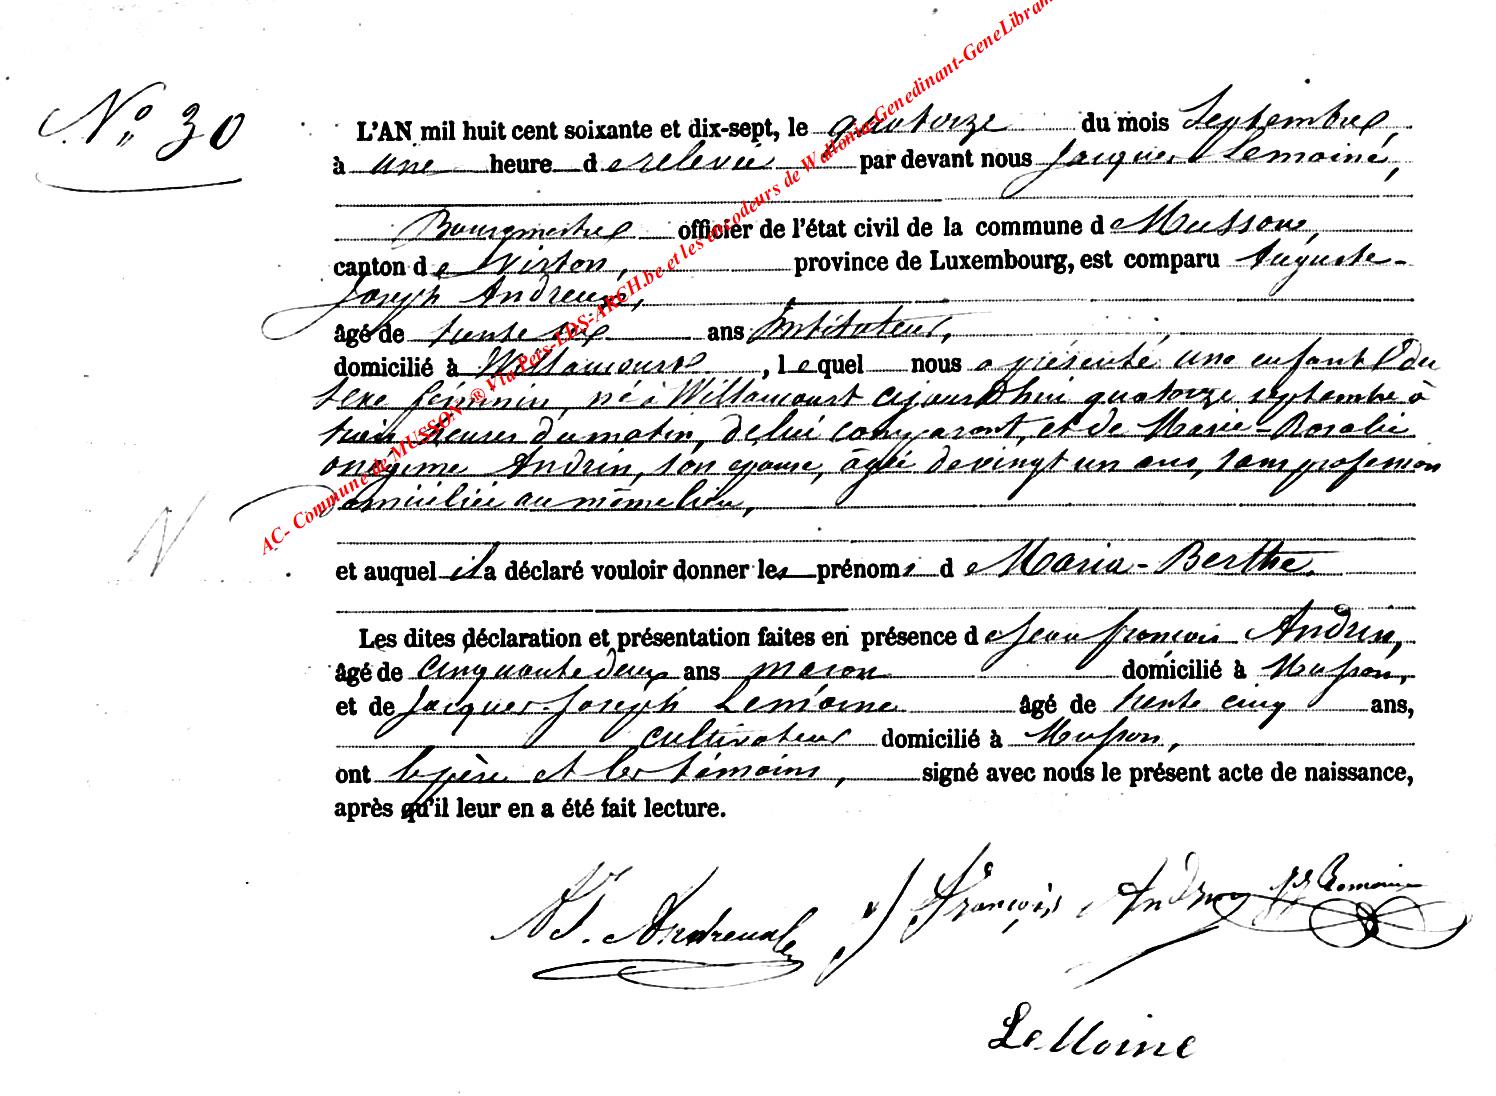 N° 30
L'AN mil huit cent soixante et dix-sept, le quatorze du mois Septembre,
à une heure de relevée par devant nous Jacques Lemoine,
Bourgmestre officier de l'état civil de la commune de Musson,
canton de Virton, province de Luxembourg, est comparu Auguste-
Joseph Andreux,
âgé de trente six ans Instituteur,
domicilié à Willancourt, lequel nous a présenté une enfant du
sexe féminin, né à Willancourt cejourdhui quatorze septembre à
trois heures du matin, de lui comparant, et de Marie-Rosalie
onésime Andrin, son épouse, âgée de vingt un ans, sans profession
domiciliée au même lieu,
et auquel il a déclaré vouloir donner les prénoms de Maria-Berthe.
Les dites déclaration et présentation faites en présence de Jean françois Andrin,
âgé de cinquante deux ans maçon domicilié à Musson,
et de Jacques Joseph Lemoine âgé de trente cinq ans,
cultivateur domicilié à Musson,
ont le père et les témoins, signé avec nous le présent acte de naissance,
après qu'il leur en a été fait lecture.
J. françois Andrin
LeMoine
AC- Commune de MUSSON ® Via Pers-LDS-ARCH.be et les encodeurs de Wallonia-Genedinant-GeneLibram